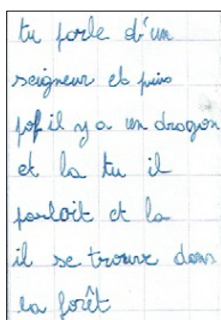 tu parle d'un
seigneur et puis
pof il y a un dragon
et la tu il
parloit et la
il se trouve dans
la forêt